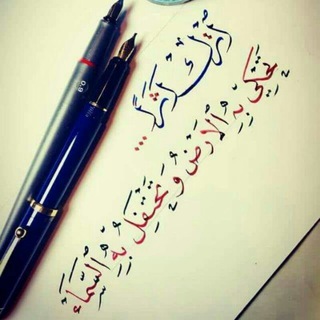 أُتْرُكْ أَثَرًا ...
تَحْكِي بِهِ الْأَرْضُ وَ تَحْتَفِلُ بِهِ السَّمَاءُ